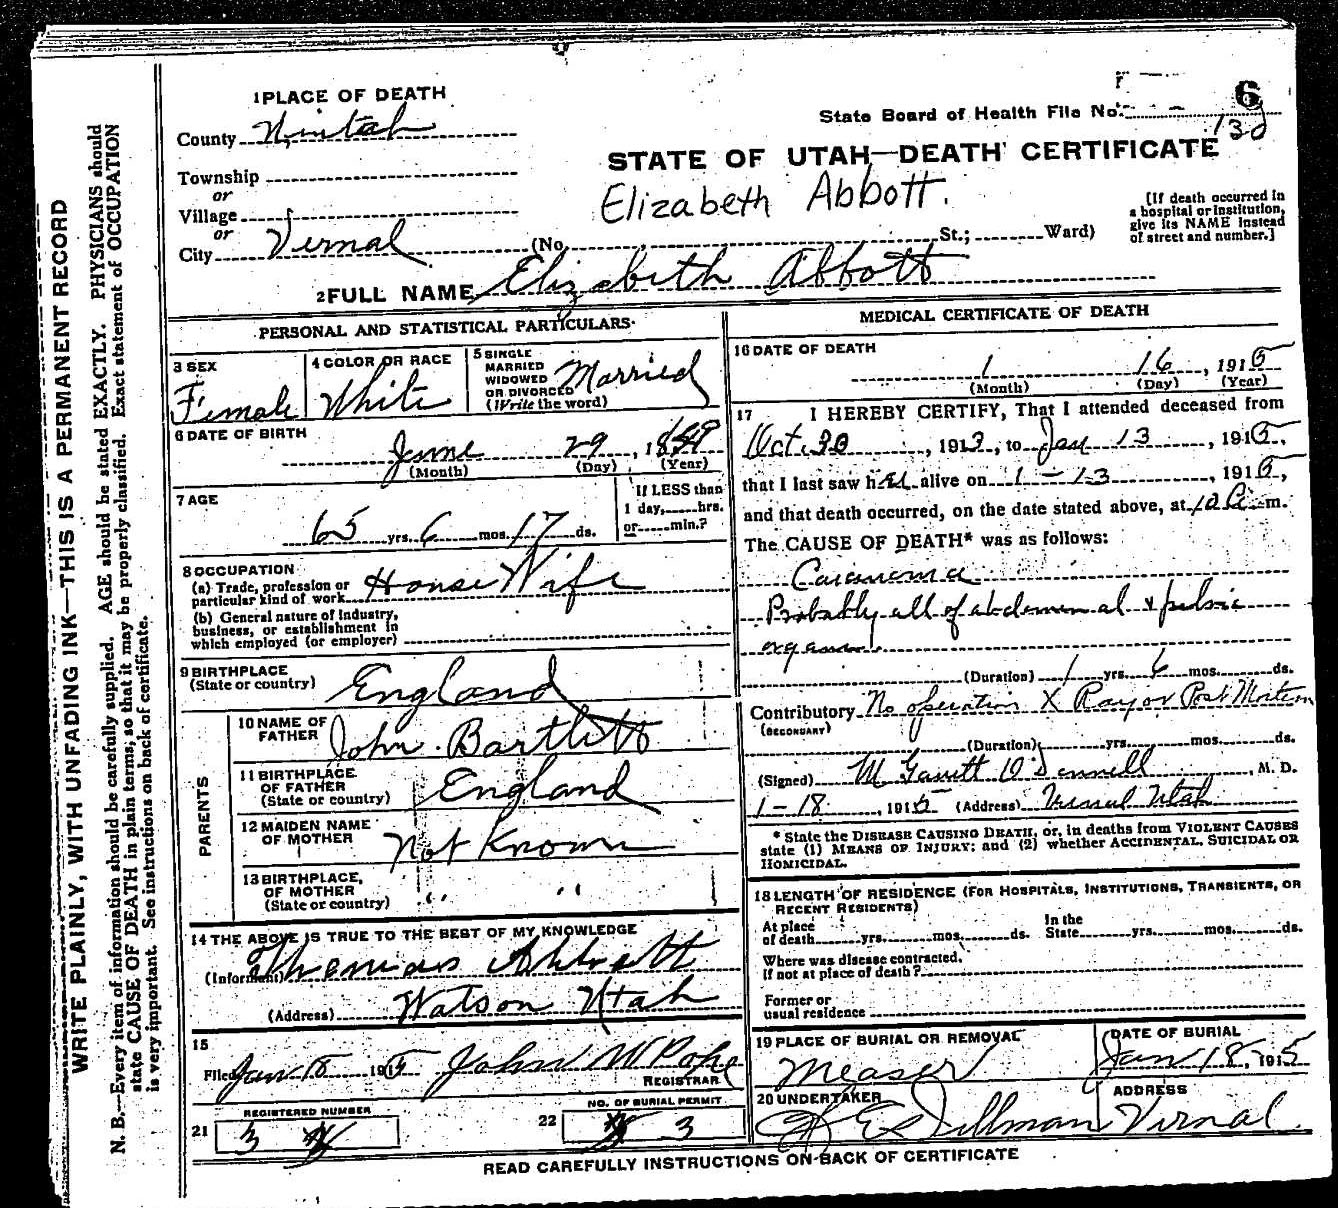 1 PLACE OF DEATH
County Uintah
Township
or
Village
or
City Vernal (No. St.; Ward)
State Board of Health File No. 6
130
STATE OF UTAH—DEATH CERTIFICATE
Elizabeth Abbott.
[If death occurred in
a hospital or institution,
give its NAME instead
of street and number.]
2 FULL NAME Elizabeth Abbott
PERSONAL AND STATISTICAL PARTICULARS
3 SEX
Female
4 COLOR OR RACE
White
5 SINGLE
MARRIED
WIDOWED
OR DIVORCED
(Write the word)
Married
6 DATE OF BIRTH
June 29, 1849
(Month) (Day) (Year)
7 AGE
65 yrs. 6 mos. 17 ds.
If LESS than
1 day, hrs.
or min.?
8 OCCUPATION
(a) Trade, profession or
particular kind of work House Wife
(b) General nature of Industry,
business, or establishment in
which employed (or employer)
9 BIRTHPLACE
(State or country) England
PARENTS
10 NAME OF
FATHER John Bartlett
11 BIRTHPLACE
OF FATHER
(State or country) England
12 MAIDEN NAME
OF MOTHER Not Known
13 BIRTHPLACE,
OF MOTHER
(State or country) " "
14 THE ABOVE IS TRUE TO THE BEST OF MY KNOWLEDGE
(Informant) Thomas Abbott
(Address) Watson Utah
15
Filed Jan 18 1915 John W Pope
REGISTRAR
REGISTERED NUMBER
21 3
NO. OF BURIAL PERMIT
22 3
MEDICAL CERTIFICATE OF DEATH
16 DATE OF DEATH
1 16, 1915
(Month) (Day) (Year)
17 I HEREBY CERTIFY, That I attended deceased from
Oct. 30, 1913, to Jan 13, 1915,
that I last saw her alive on 1-13, 1915,
and that death occurred, on the date stated above, at 10 a. m.
The CAUSE OF DEATH* was as follows:
Carcinoma
Probably all of abdomenal & pelvic
organs.
(Duration) 1 yrs. 6 mos. ds.
Contributory No operation X Ray or Post Mortem
(SECONDARY)
(Duration) yrs. mos. ds.
(Signed) M Garrett O'Donnell, M. D.
1-18, 1915 (Address) Vernal Utah
* State the DISEASE CAUSING DEATH, or, in deaths from VIOLENT CAUSES
state (1) MEANS OF INJURY; and (2) whether ACCIDENTAL, SUICIDAL OR
HOMICIDAL.
18 LENGTH OF RESIDENCE (FOR HOSPITALS, INSTITUTIONS, TRANSIENTS, OR
RECENT RESIDENTS)
At place
of death yrs. mos. ds.
In the
State yrs. mos. ds.
Where was disease contracted,
if not at place of death?
Former or
usual residence
19 PLACE OF BURIAL OR REMOVAL
Measer
DATE OF BURIAL
Jan 18, 1915
20 UNDERTAKER
Dillman
ADDRESS
Vernal
READ CAREFULLY INSTRUCTIONS ON BACK OF CERTIFICATE
WRITE PLAINLY, WITH UNFADING INK—THIS IS A PERMANENT RECORD
N. B.—Every item of information should be carefully supplied. AGE should be stated EXACTLY. PHYSICIANS should
state CAUSE OF DEATH in plain terms, so that it may be properly classified. Exact statement of OCCUPATION
is very important. See instructions on back of certificate.